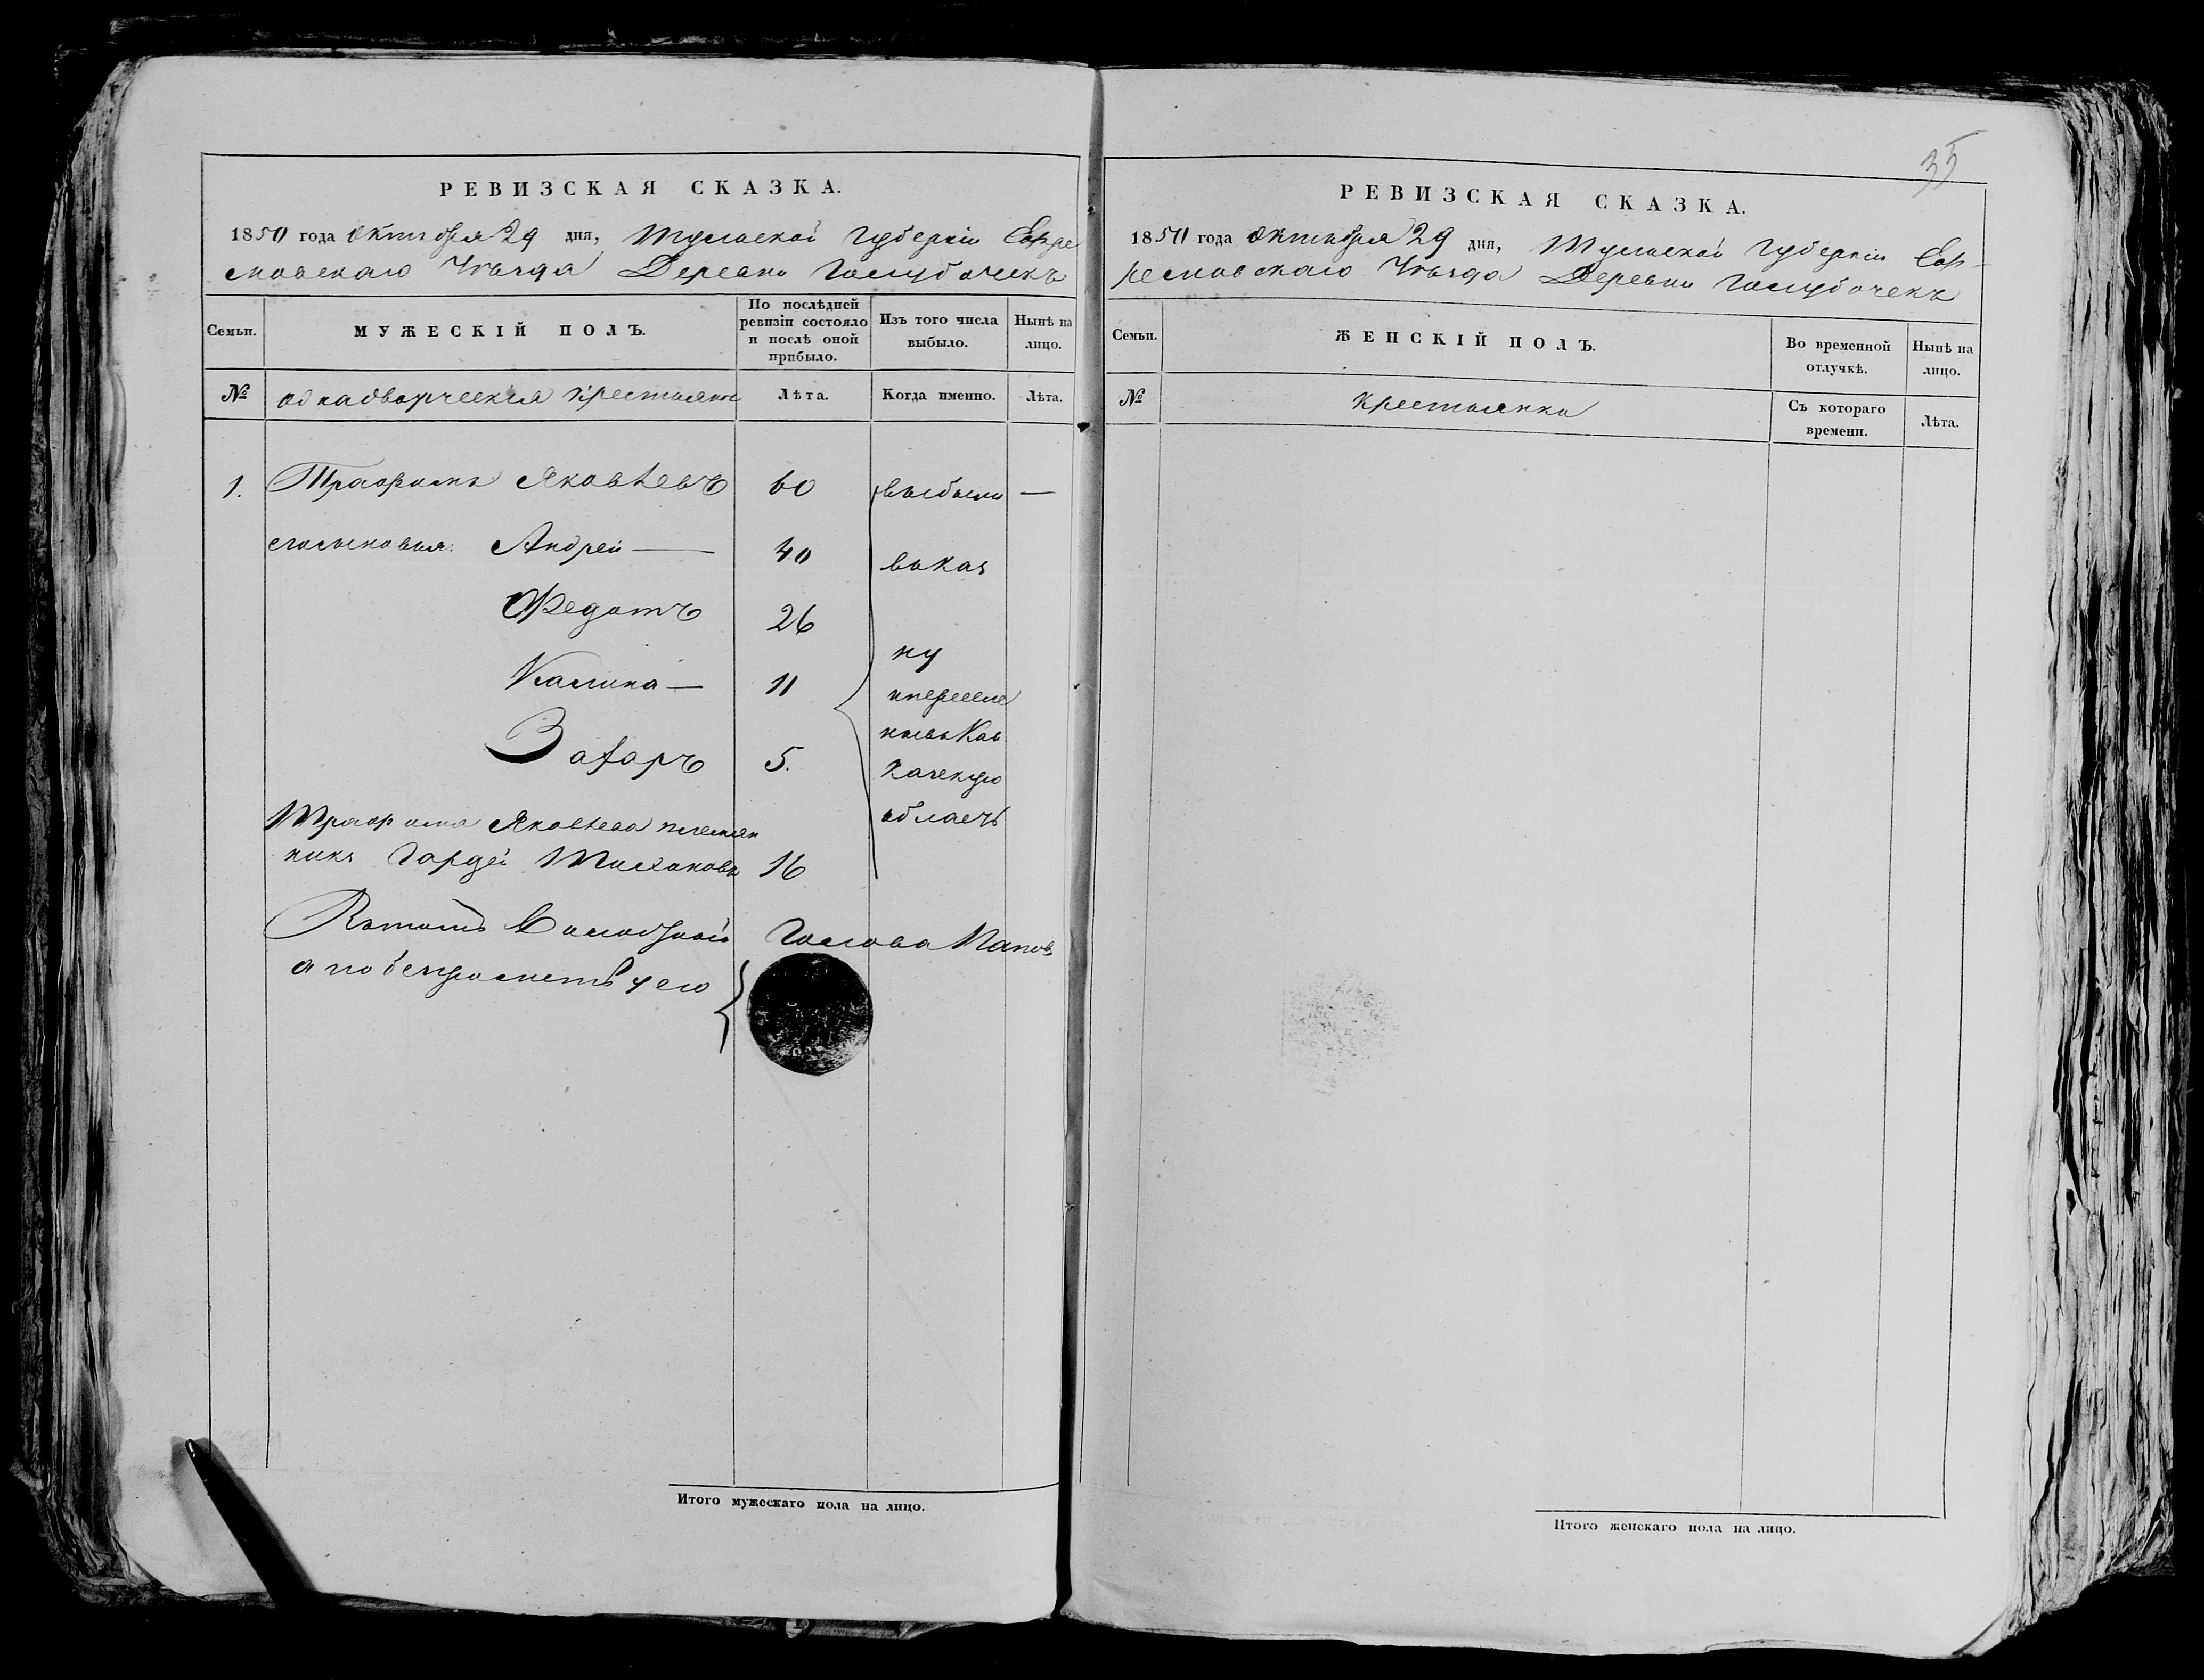 РЕВИЗСКАЯ СКАЗКА.
1850 года октября 29 дня, Тульской губернiи Ефре
мовскаго Уѣзда Деревни Голубочекъ
Семьи.
МУЖЕСКIЙ ПОЛЪ.
По послѣдней
ревизiи состояло
и послѣ оной
прибыло.
Изъ того числа
выбыло.
Нынѣ на
лицо.
№ однадворческiя крестьяне Лѣта. Когда именно. Лѣта.
1. Трафимъ Яковлевъ 60 выбыли —
егосыновья: Андрей — 40 вька
Федотъ 26
Калина — 11
Захаръ 5.
ну
ипереселе
ны въ Кав
казскую
область
Трафима Яковлева племян
никъ Гордей 16
Волосной Голова Папов
а по безграмотству его
Итого мужескаго пола на лицо.
35
РЕВИЗСКАЯ СКАЗКА.
1850 года октября 29 дня, Тульской губернiи Еф-
ремовскаго Уѣзда Деревни Голубочекъ
Семьи.
ЖЕНСКIЙ ПОЛЪ.
Во временной
отлучкѣ.
Нынѣ на
лицо.
№ крестьянки
Съ котораго
времени.
Лѣта.
Итого женскаго пола на лицо.